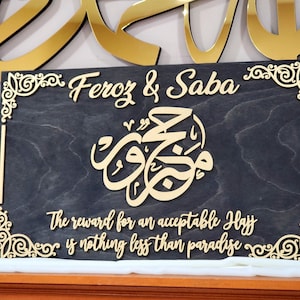 Feroz & Saba
حج مبرور
The reward for an acceptable Hajj
is nothing less than paradise